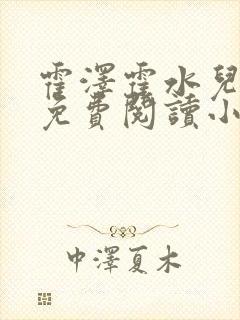 霍澤霍水兒
免費閱讀小
中澤夏木